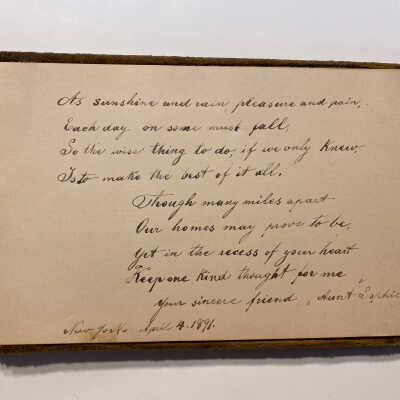 As sunshine and rain, pleasure and pain,
Each day on some must fall,
So the wise thing to do, if we only knew,
Is to make the best of it all.
Though many miles apart
Our homes may prove to be,
Yet in the recess of your heart
Keep one kind thought for me
Your sincere friend, "Aunt" Sophie
New York. April 4. 1891.